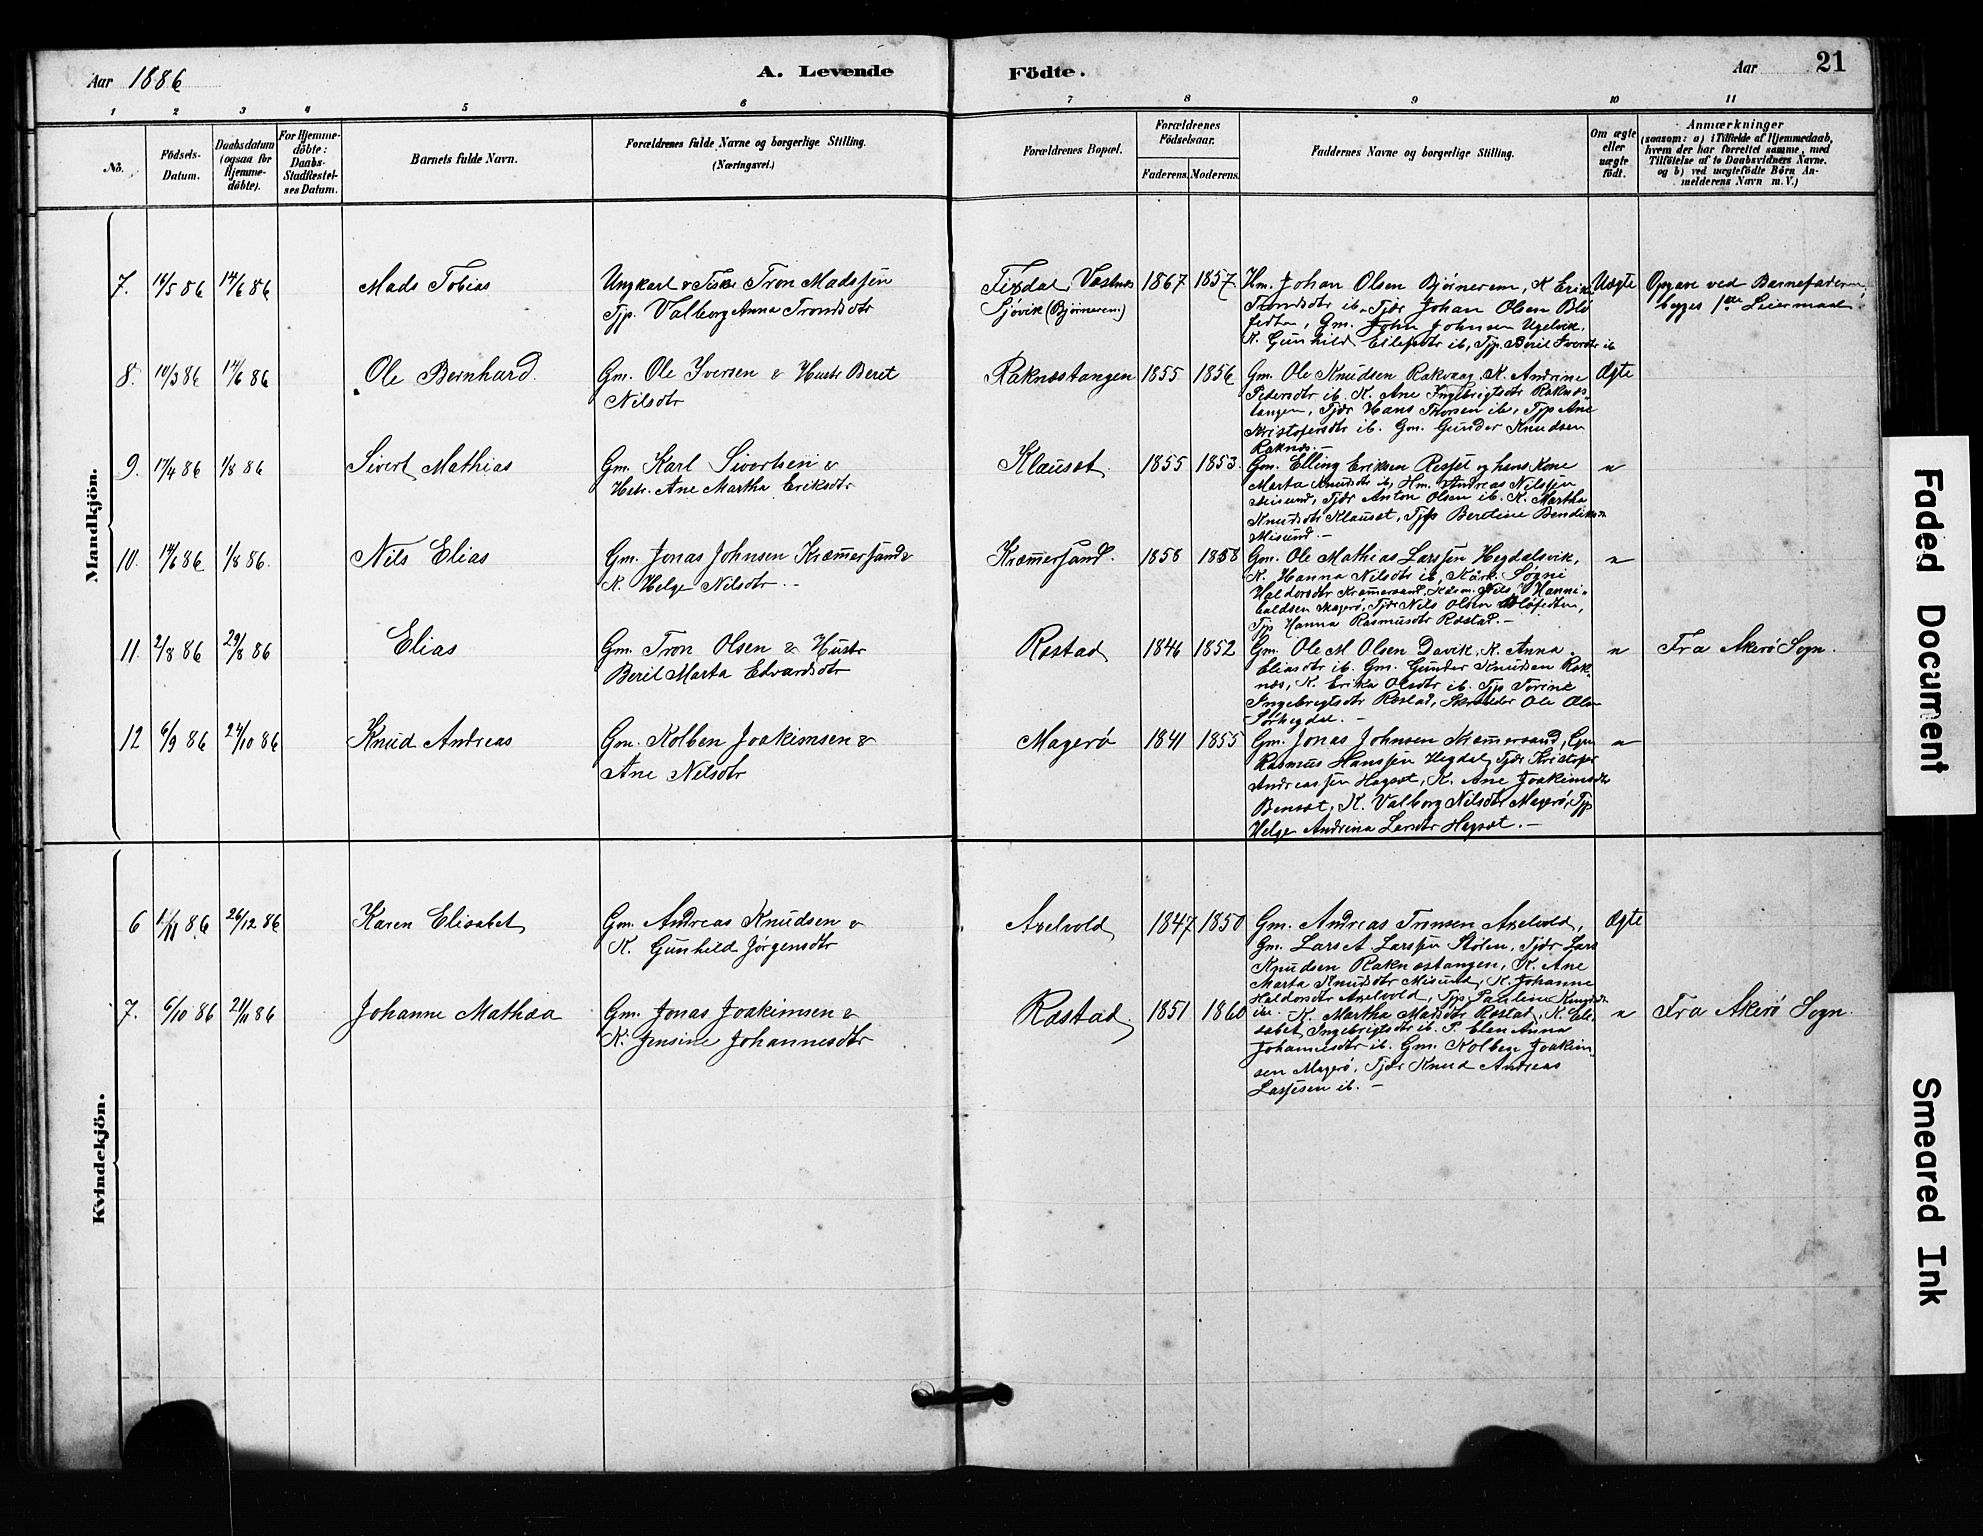 Aar 1886
A. Levende
Födte.
Aar
21
1 2 3 4 5 6 7 8 9 10 11
No.
Födsels-
Datum.
Daabsdatum
(ogsaa for
Hjemme-
döbte).
For Hjemme-
döbte:
Daabs-
Stadfæstel-
ses Datum.
Barnets fulde Navn.
Forældrenes fulde Navne og borgerlige Stilling.
(Næringsvei.)
Forældrenes Bopæl.
Forældrenes
Födselsaar.
Faderens. Moderens.
Faddernes Navne og borgerlige Stilling.
Om ægte
eller
uægte
födt.
Anmærkninger
(saasom: a) i Tilfælde af Hjemmedaab,
hvem der har forrettet samme, med
Tilföielse af to Daabsvidners Navne,
og b) ved uægtefödte Börn An-
melderens Navn m. V.)
Mandkjön.
7. 14/5 86 14/6 86
Mads Tobias
Ungkarl & Fisker Tron Madssen
Tjp. Valborg Anna Trondsdtr
Tixdal, Vestnes
Sjøvik (Bjørnerem.)
1867 1857
Hm. Johan Olsen Bjørnerem, K. Erika
Trondsdtr ib. Tjdr Johan Olsen
Gm. John Johnsen Ugelvik,
K. Gunhild Ellefsdtr ib, Tjp. Beril Iversdtr ib
Uægte
Opgave ved Barnefaderen,
begges 1ste Leiermaal.
8. 10/3 86 14/6 86
Ole Bernhard.
Gm. Ole Iversen & Hustr Beret
Nilsdtr
Raknæstangen
1855 1856
Gm. Ole Knudsen Rakvaag, K. Andrine
Pedersdtr ib. K. Ane Ingebrigtsdtr Raknæs-
tangen, Tjdr Hans Thorsen ib, Tjp Ane
Kristofersdtr ib. Gm. Gunder Knudsen
Raknæs. —
Ægte
9. 17/4 86 1/8 86
Sivert Mathias
Gm. Karl Sivertsen &
Hstr. Ane Martha Eriksdtr
Klauset.
1855 1853.
Gm. Elling Eriksen og hans Kone
Marta Knudsdtr ib, Hm. Andreas Nilssen
Misund, Tjdr Anton Olsen ib. K. Martha
Knudsdtr Klauset, Tjp Beroline Bendiksdtr
Misund. —
"
10. 14/6 86 1/8 86.
Nils Elias
Gm. Jonas Johnsen Kræmersand &
K. Helge Nilsdtr. -
Kræmersand.
1858 1858
Gm. Ole Mathias Larssen Hegdalsvik,
K. Hanna Nilsdtr ib, Søgni
Haldorsdtr Kræmersand, Nils Hanni-
baldsen Magerø, Tjdr Nils Olsen
Tjp Hanna Rasmusdtr Røstad. —
"
11. 2/8 86 29/8 86
Elias
Gm. Tron Olsen & Hustr
Beril Marta Edvardsdtr
Røstad
1846 1852
Gm. Ole M Olsen Davik, K. Anna
Eliasdtr ib. Gm. Gunder Knudsen Rak-
næs, K. Erika Olsdtr ib. Tjp Torine
Ingebrigtsdtr Røstad, Skræder Ole Olsen
Sørhegdal. —
"
Fra Akerø Sogn.
12 6/9 86 24/10 86
Knud Andreas
Gm. Kolben Joakimsen &
Ane Nilsdtr
Magerø
1841 1855
Gm. Jonas Johnsen Kræmersand, Gm
Rasmus Hanssen Hegdal, Tjdr Kristofer
Andreassen Hagset, K. Ane Joakimsdtr
Benset, K. Valborg Nilsdtr Magerø, Tjp
Helge Andrina Larsdtr Hagset. —
"
Kvindekjön.
6 86 26/12 86
Karen Elisabet
Gm. Andreas Knudsen &
K. Gunhild Jørgensdtr
Axelvold
1847 1850
Gm. Andreas Tronsen Axelvold,
Gm. Lars A. Larssen Stølen, Tjdr Lars
Knudsen Raknæstangen, K. Ane
Marta Knudsdtr Misund, K. Johanne
Haldorsdtr Axelvold, Tjp. Pauline Knudsdtr
ib.
Ægte
7. 6/10 86 21/11 86
Johanne Mathea
Gm. Jonas Joakimsen &
K. Jensine Johannesdtr
Røstad.
1851 1860
K. Martha Madsdtr Røstad, K. Eli-
sabet Ingebrigtsdtr ib. P. Elen Anna
Johannesdtr ib. Gm. Kolben Joakim-
sen Magerø, Tjdr Knud Andreas
Lassesen ib. —
"
Fra Akerø Sogn.
Faded Document
Smeared Ink